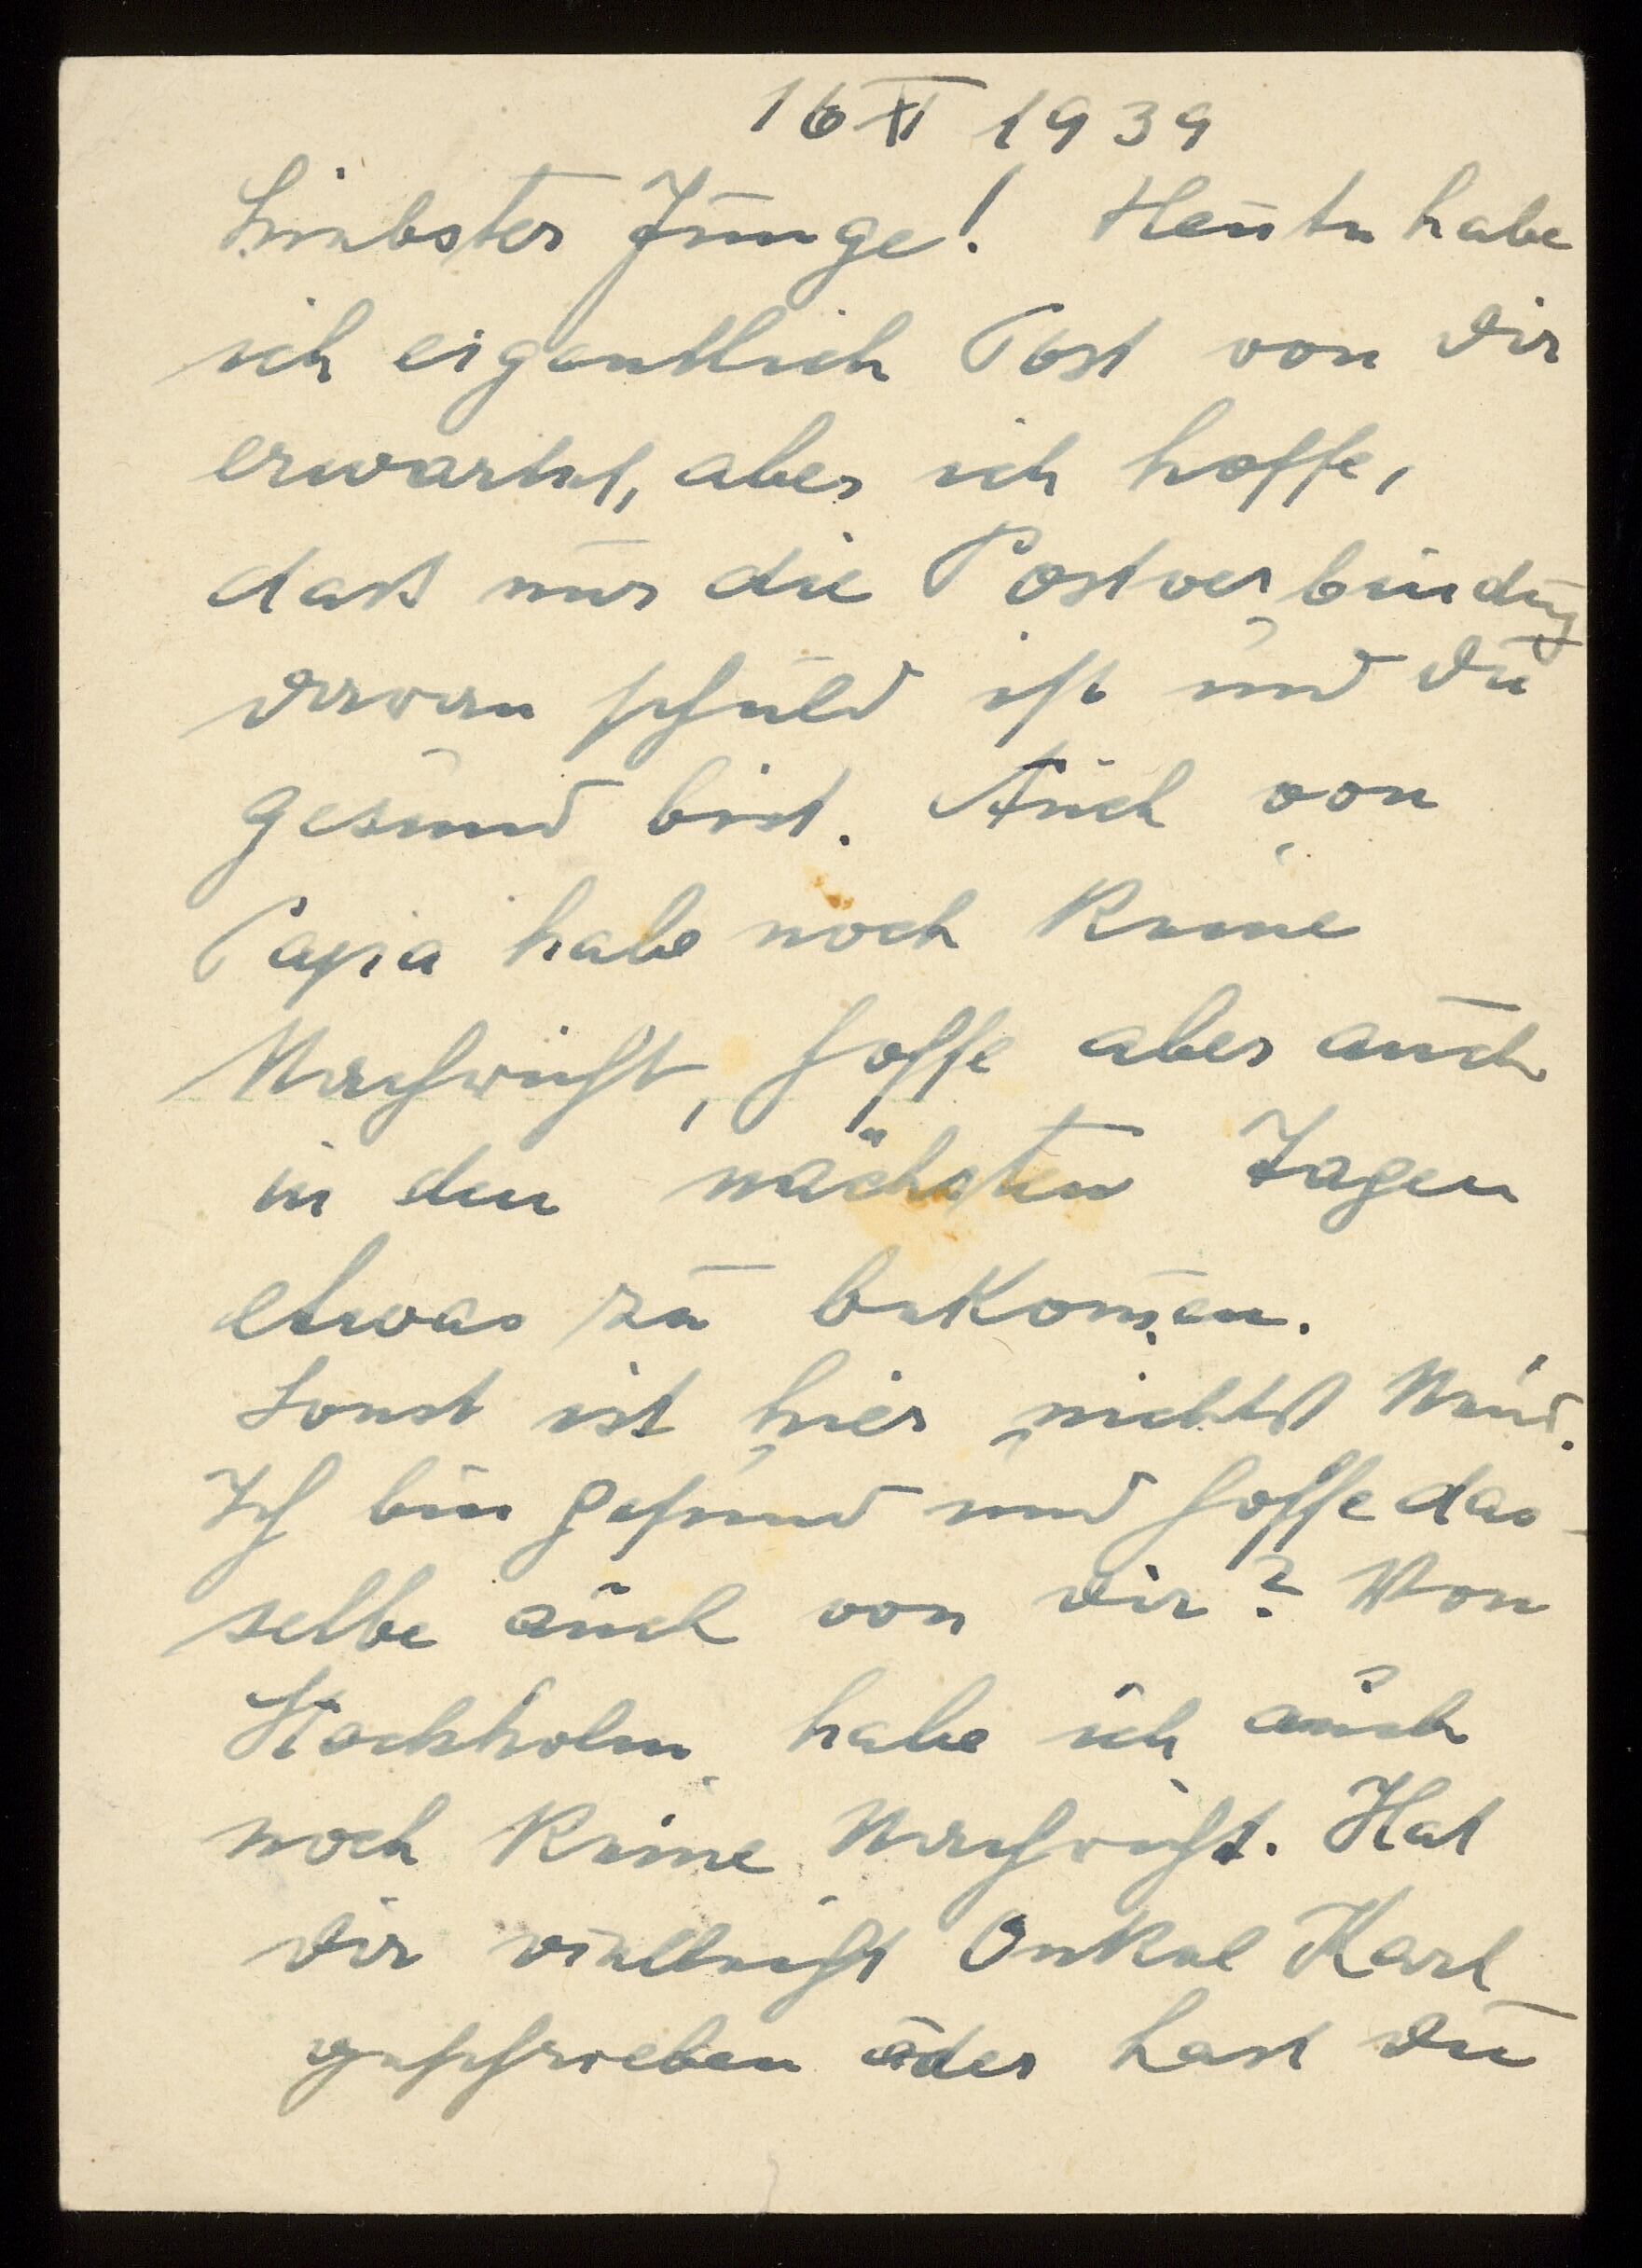 16 XI 1939
Liebster Junge! Heute habe
ich eigentlich Post von Dir
erwartet, aber ich hoffe,
daß nur die Postverbindung
daran schuld ist und Du
gesund bist. Auch von
Papa habe noch keine
Nachricht, hoffe aber auch
in den nächsten Tagen
etwas zu bekom̄en.
Sonst ist hier nichts
Ich bin gesund und hoffe das-
selbe auch von Dir? Von
Stockholm habe ich auch
noch keine Nachricht. Hat
Dir vielleicht Onkel Karl
geschrieben oder hast Du